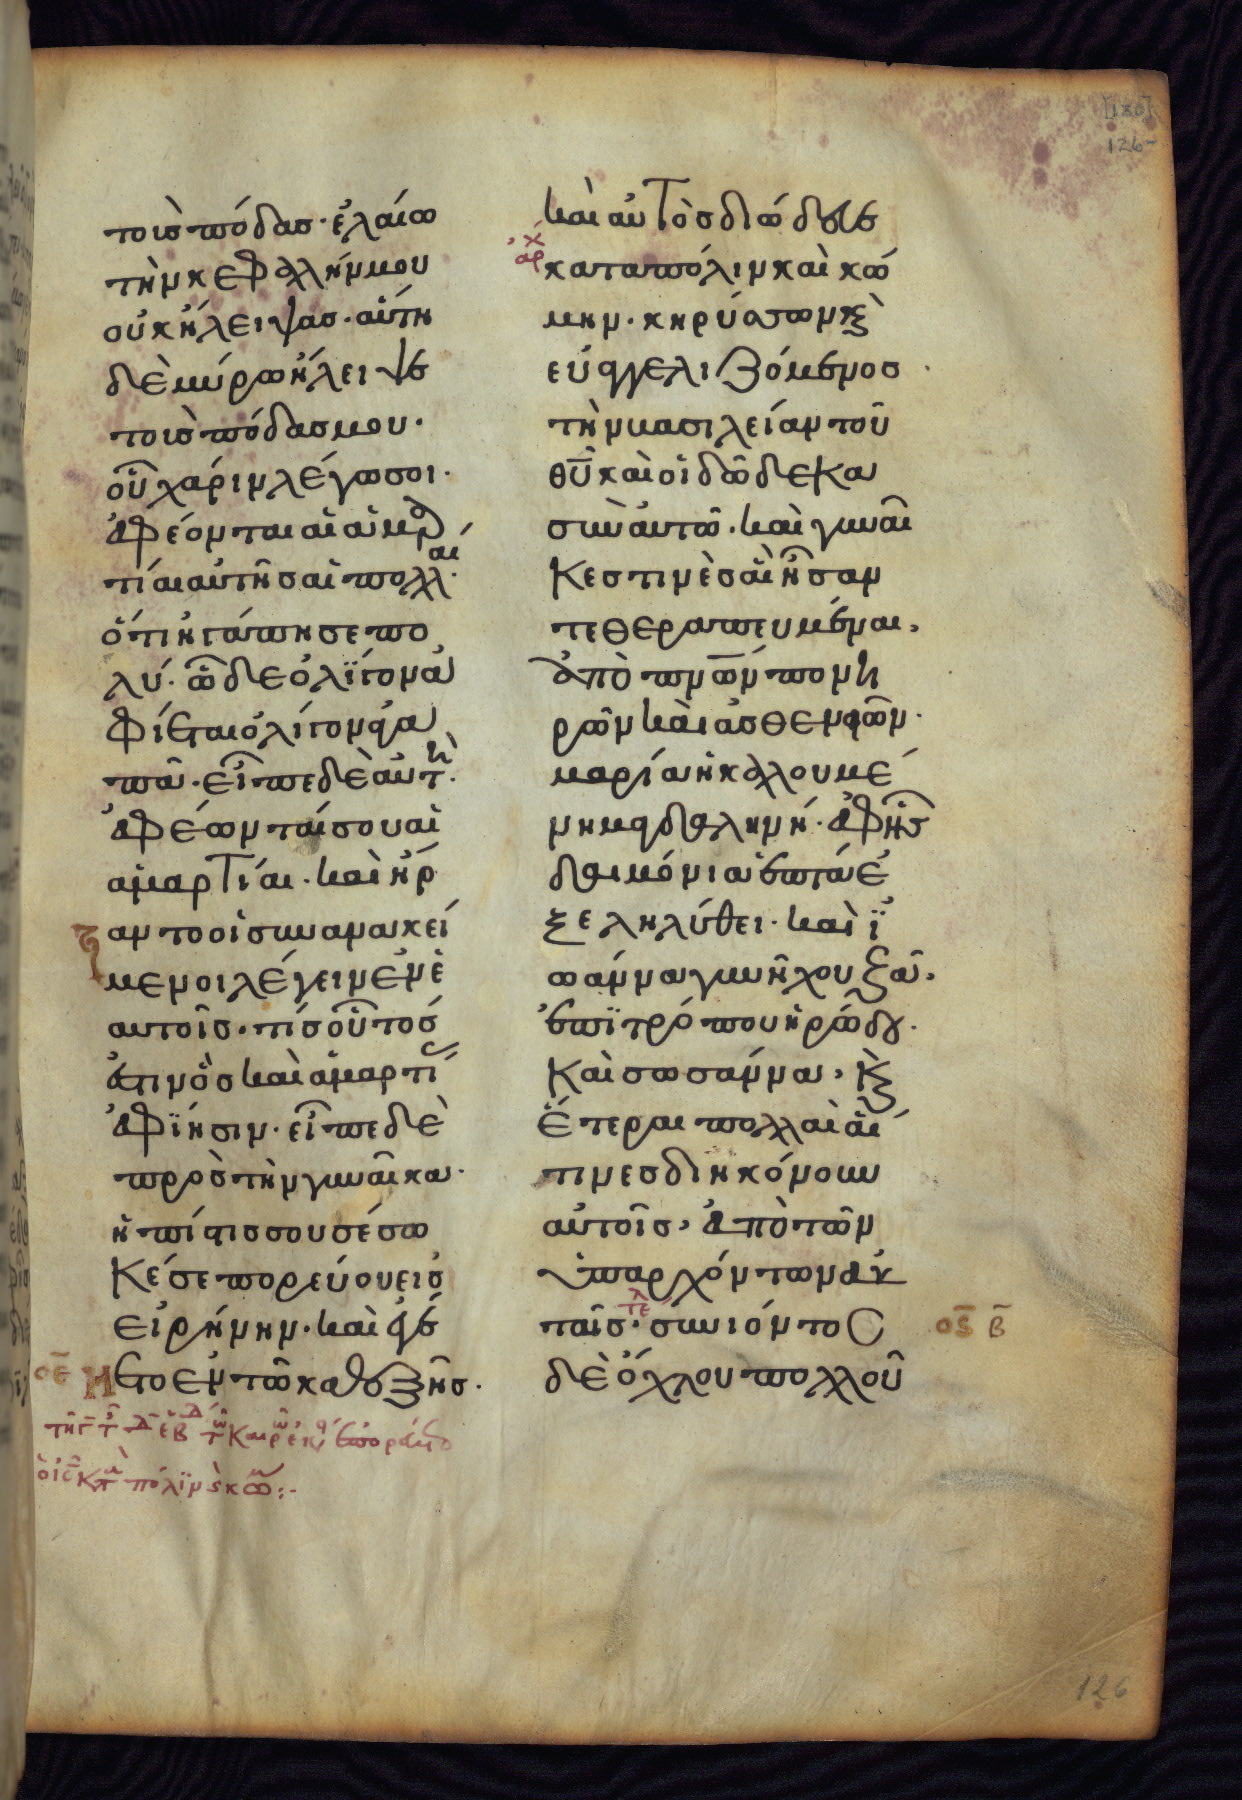 τοὺσ πόδασ· ἐλαίω
τὴν κεφαλήν μου
οὐκ ἤλειψασ· αὕτη
δὲ μύρω ἤλειψε
τοὺσ πόδασ μου·
οὗ χάριν λέγω σοι·
ἀφέονται αἱ ἁμαρ
τίαι αὐτῆσ αἱ πολλαί·
ὅτι ἠγάπησε πο
λύ· ὧ δὲ ὀλίγον ἀ
φίεται ὀλίγον ἀγα
πᾶ· εἶπε δὲ αὐτῆ·
ἀφέωνταί σου αἱ
ἁμαρτίαι· καὶ ἤρ
ξαντο οἱ συνανακεί
μενοι λέγειν ἐν ἑ
αυτοῖσ· τίσ οὗτόσ
ἐστιν ὃσ καὶ ἁμαρτί
ἀφϊησιν· εἶπε δὲ
πρὸσ τὴν γυναῖκα·
ἡ πίστισ σου σέσω
κέ σε πορεύου εισ
εἰρήνην· καὶ ἐγέ
ο̅ε̅ νετο ἐν τῶ καθεξῆσ·
καὶ αὐτὸσ διώδευε
ἀρχ κατα πόλιν καὶ κώ
μην· κηρύσσων κὲ
εὐαγγελιζόμενοσ
τὴν βασιλείαν τοῦ
θ̅υ̅ καὶ οἱ δώδεκα
σὺν αὐτῶ· καὶ γυναῖ
κεσ τινὲσ αἳ ἦσαν
τεθεραπευμέναι,
ἀπὸ πν̅ων πονη
ρῶν καὶ ἀσθενειῶν·
μαρία ἡ καλουμέ
νη μαγδαληνή· ἀφ' ἧσ
δαιμόνια ἑπτὰ ἐ
ξεληλύθει· καὶ ϊ
ωάννα γυνὴ χουζᾶ,
ἐπϊτρόπου ἡρώδου·
καὶ σωσάννα, κὲ
ἕτεραι πολλαὶ αἵ
τινεσ διηκόνουν
αὐτοῖσ, ἀπὸ τῶν
ὑπαρχόντων αὐ
ταῖσ· τελ συνιόντοσ ο̅ς̅ β̅
δὲ ὄχλου πολλοῦ
[180]
126
126